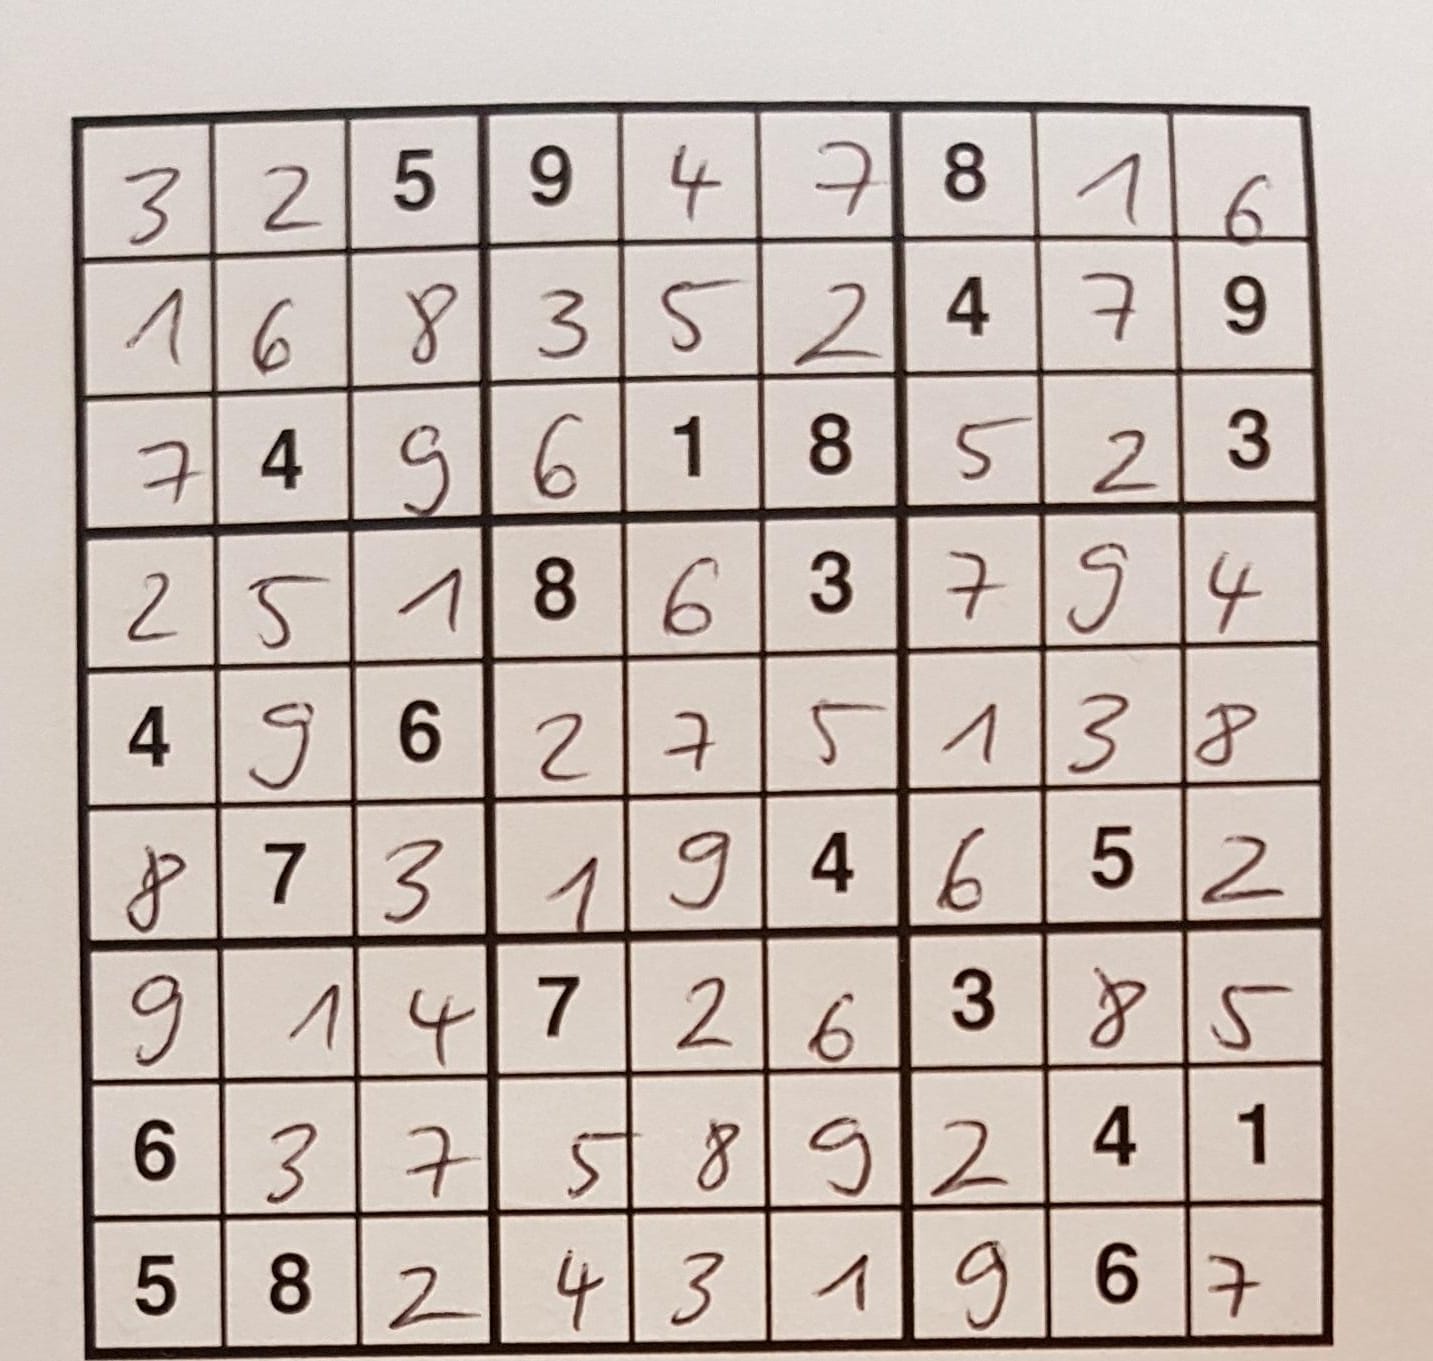 3 2 5 9 4 7 8 1 6
1 6 8 3 5 2 4 7 9
7 4 9 6 1 8 5 2 3
2 5 1 8 6 3 7 9 4
4 9 6 2 7 5 1 3 8
8 7 3 1 9 4 6 5 2
9 1 4 7 2 6 3 8 5
6 3 7 5 8 9 2 4 1
5 8 2 4 3 1 9 6 7